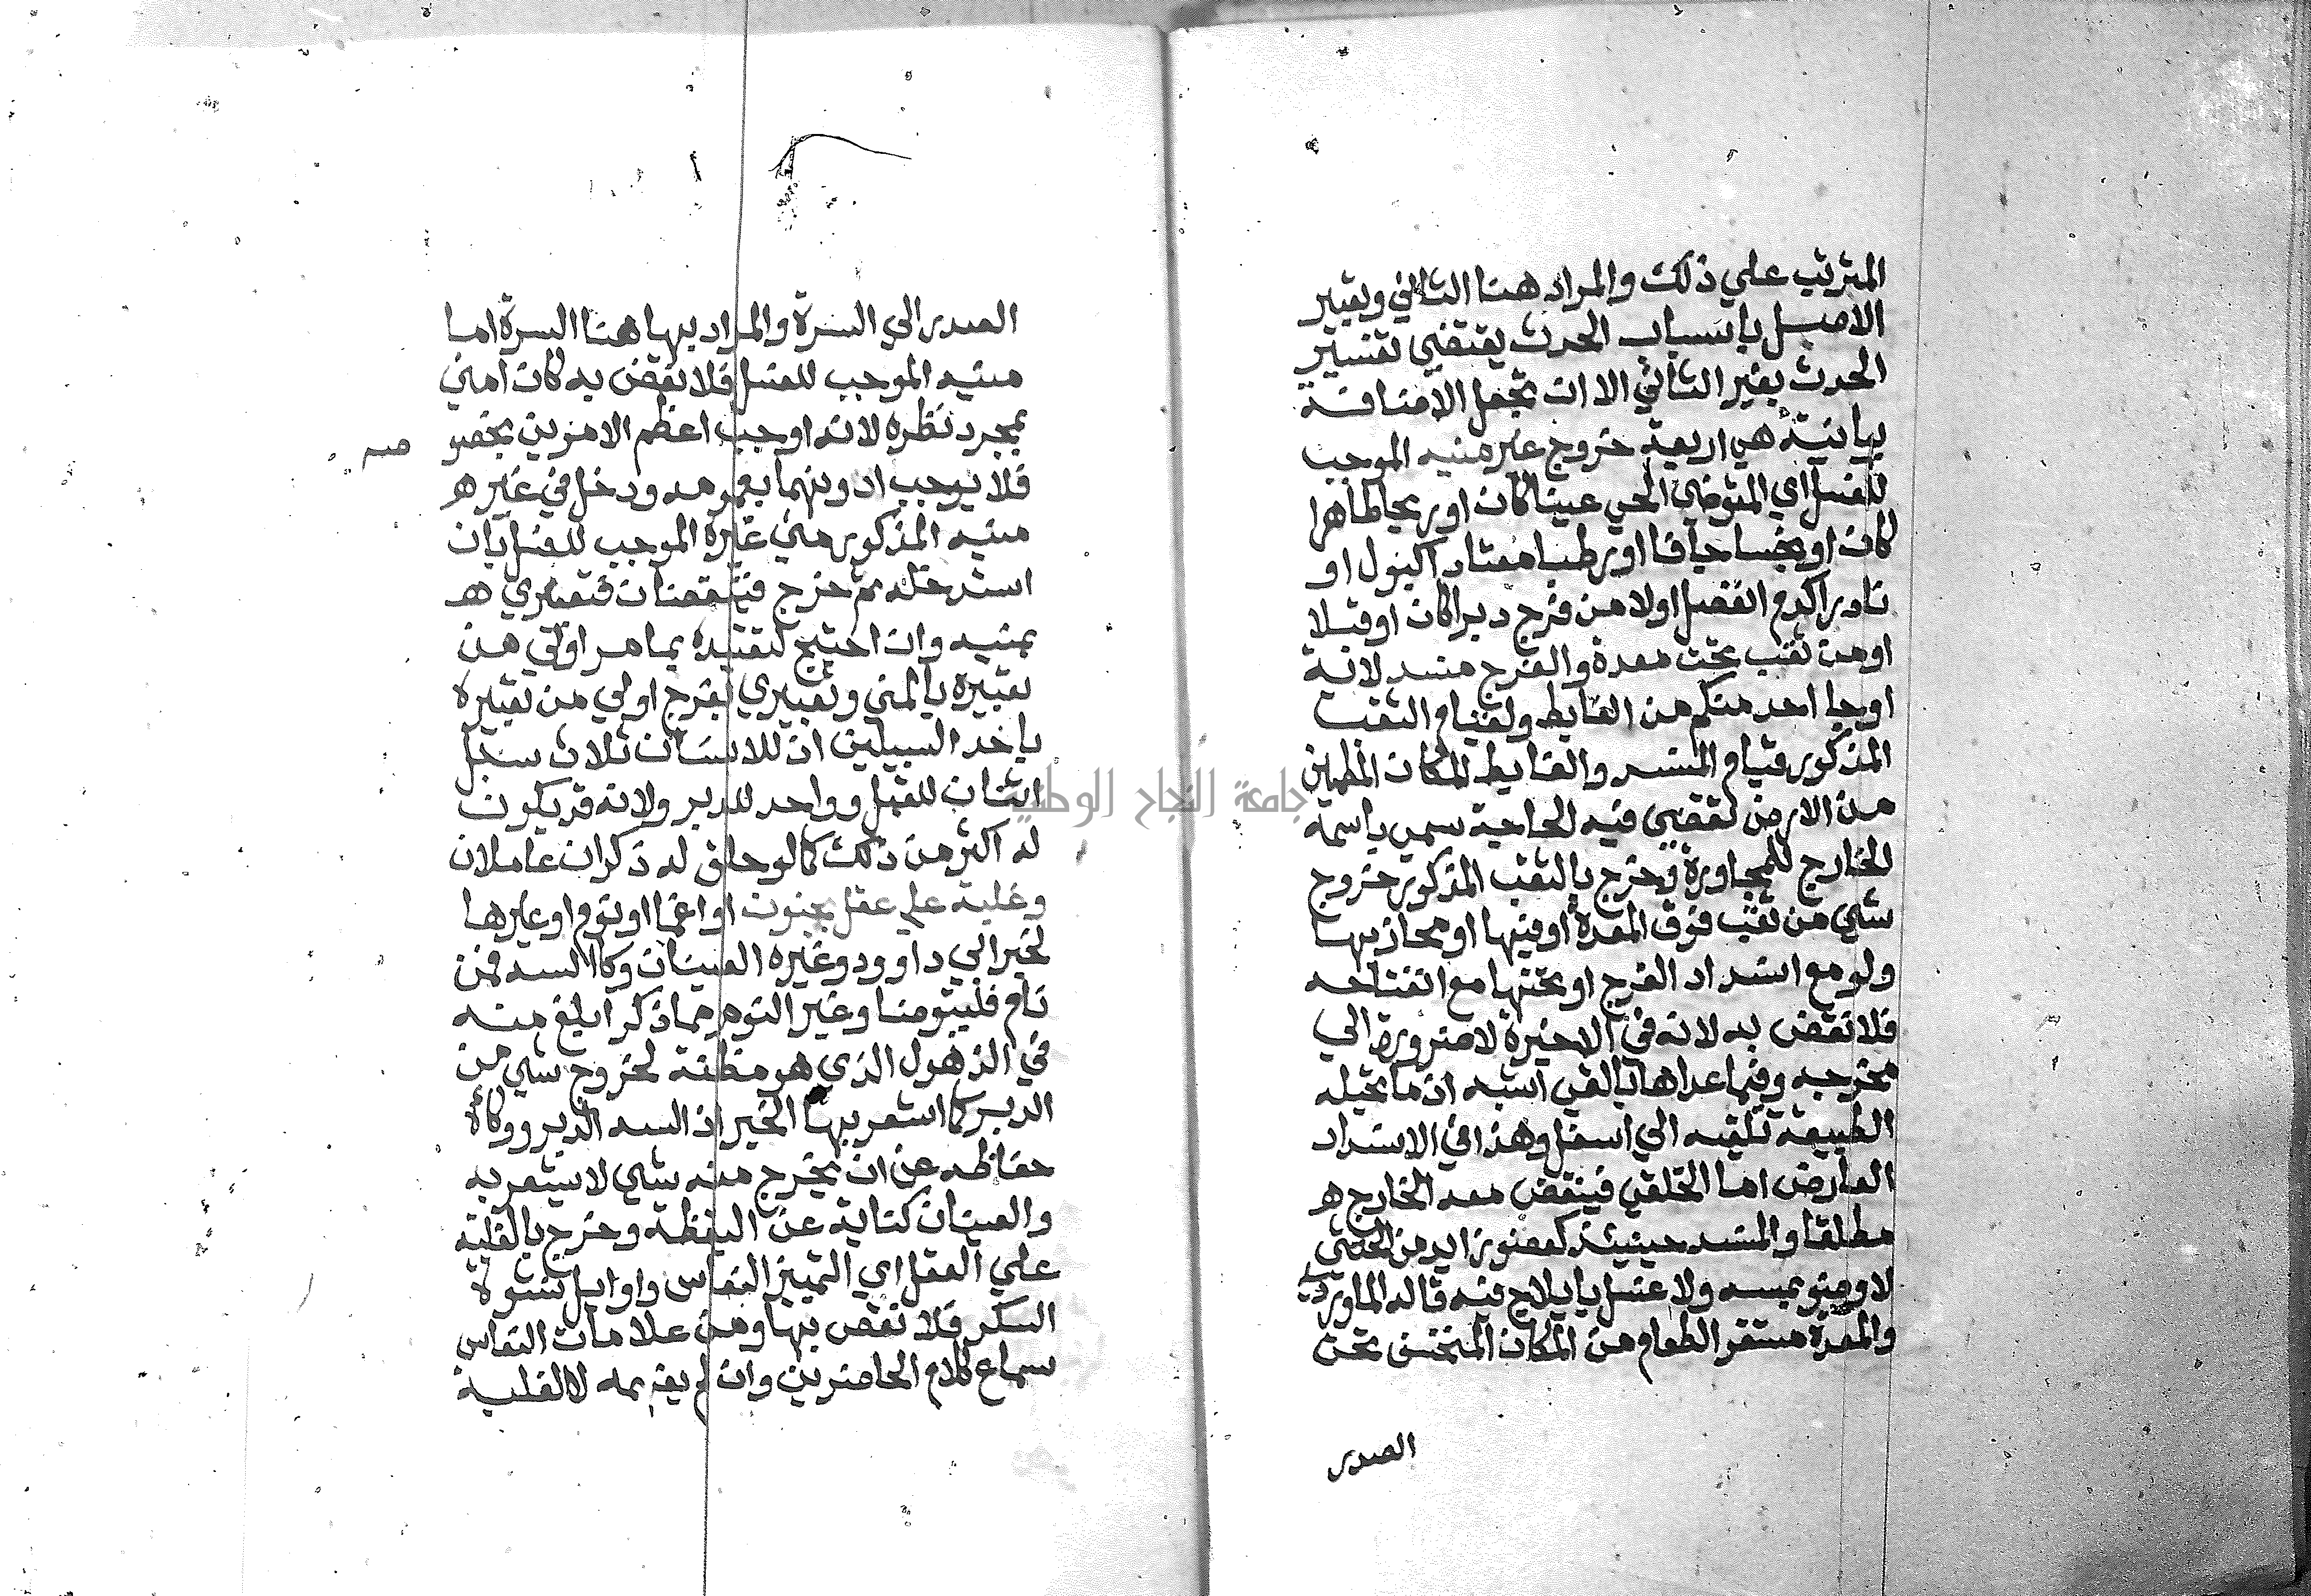 المترتب علي ذلك والمراد هنا الثاني وتعبير
الاصل باسباب الحدث يقتضي تفسير
الحدث بغير الثاني الا ان تجعل الاضافة
بيانية هي اربعة خروج غير منيه الموجب
للغسل اي المتوضي الحي عينا كان او ريحا طاهرا
كان او نجسا جافا او رطبا معتادا كبول او
نادرا كدم انفصل اولا من فرج دبرا كان او قبلا
او من ثقب تحت معدة والفرج منسد لاية
او جا احد منكم من الغايط ولقيام الثقب
المذكور قيام المنسد والغايط المكان المطمين
من الارض تقضي فيه الحاجة سمي باسمه
الخارج للمجاورة وخرج بالثقب المذكور خروج
شي من ثقب فوق المعدة او فيها او محاذيها
ولو مع انسداد الفرج او تحتها مع انفتاحه
فلا نقض به لانه في الاخيرة لا ضرورة الي
مخرجه وفيما عداها بالقي اشبه اذ ما تحيله
الطبيعة تلقيه الي اسفل وهذا في الانسداد
العارض اما الخلقي فينقض معه الخارج ه
مطلقا والمنسد حينيذ كعضو زايد من الخنثي
لا وضو بمسه ولا غسل بايلاج فيه قاله الماوردي
والمعدة مستقر الطعام من المكان المنخسف تحت
الصدر
الصدر الي السرة والمراد بها هنا السرة اما
منيه الموجب للغسل فلا نقض به كان امني
بمجرد نظره لانه اوجب اعظم الامرين بخصو
صه
فلا يوجب ادونهما بعمومه ودخل في غير ه
منيه المذكور مني غيره الموجب للغسل بان
استدخله ثم خرج فينقض فتعبيري ه
بمنيه وان احتيج لتقييده بما مر اولي من
تعبيره بالمني وتعبيري بفرج اولي من تعبيره
باحد السبيلين اذ للانسان ثلاث سبل
اثنان للقبل وواحد للدبر ولانه قد يكون
له اكثر من ذلك كما لو خلق له ذكران عاملان
وغلبة علي عقل بجنون او اغما او نوم او غيرها
لخبر ابي داوود وغيره العينان وكا السه فمن
نام فليتوضا وغير النوم مما ذكر ابلغ منه
في الذهول الذي هو مظنة لخروج شي من
الدبر كما اشعر بها الخبر اذ السه الدبر ووكاه
حفاظه عن ان يخرج منه شي لا يشعر به
والعينان كناية عن اليقظة وخرج بالغلبة
علي العقل اي التمييز النعاس واوايل نشوة
السكر فلا نقض بها ومن علامات النعاس
سماع كلام الحاضرين وان لم يفهمه لا الغلبة
جامعة النجاح الوطنية